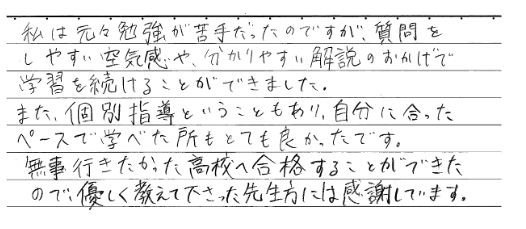 私は元々勉強が苦手だったのですが、質問を
しやすい空気感や、分かりやすい解説のおかげで
学習を続けることができました。
また、個別指導ということもあり、自分に合った
ペースで学べた所もとても良かったです。
無事行きたかった高校へ合格することができた
ので、優しく教えて下さった先生方には感謝しています。